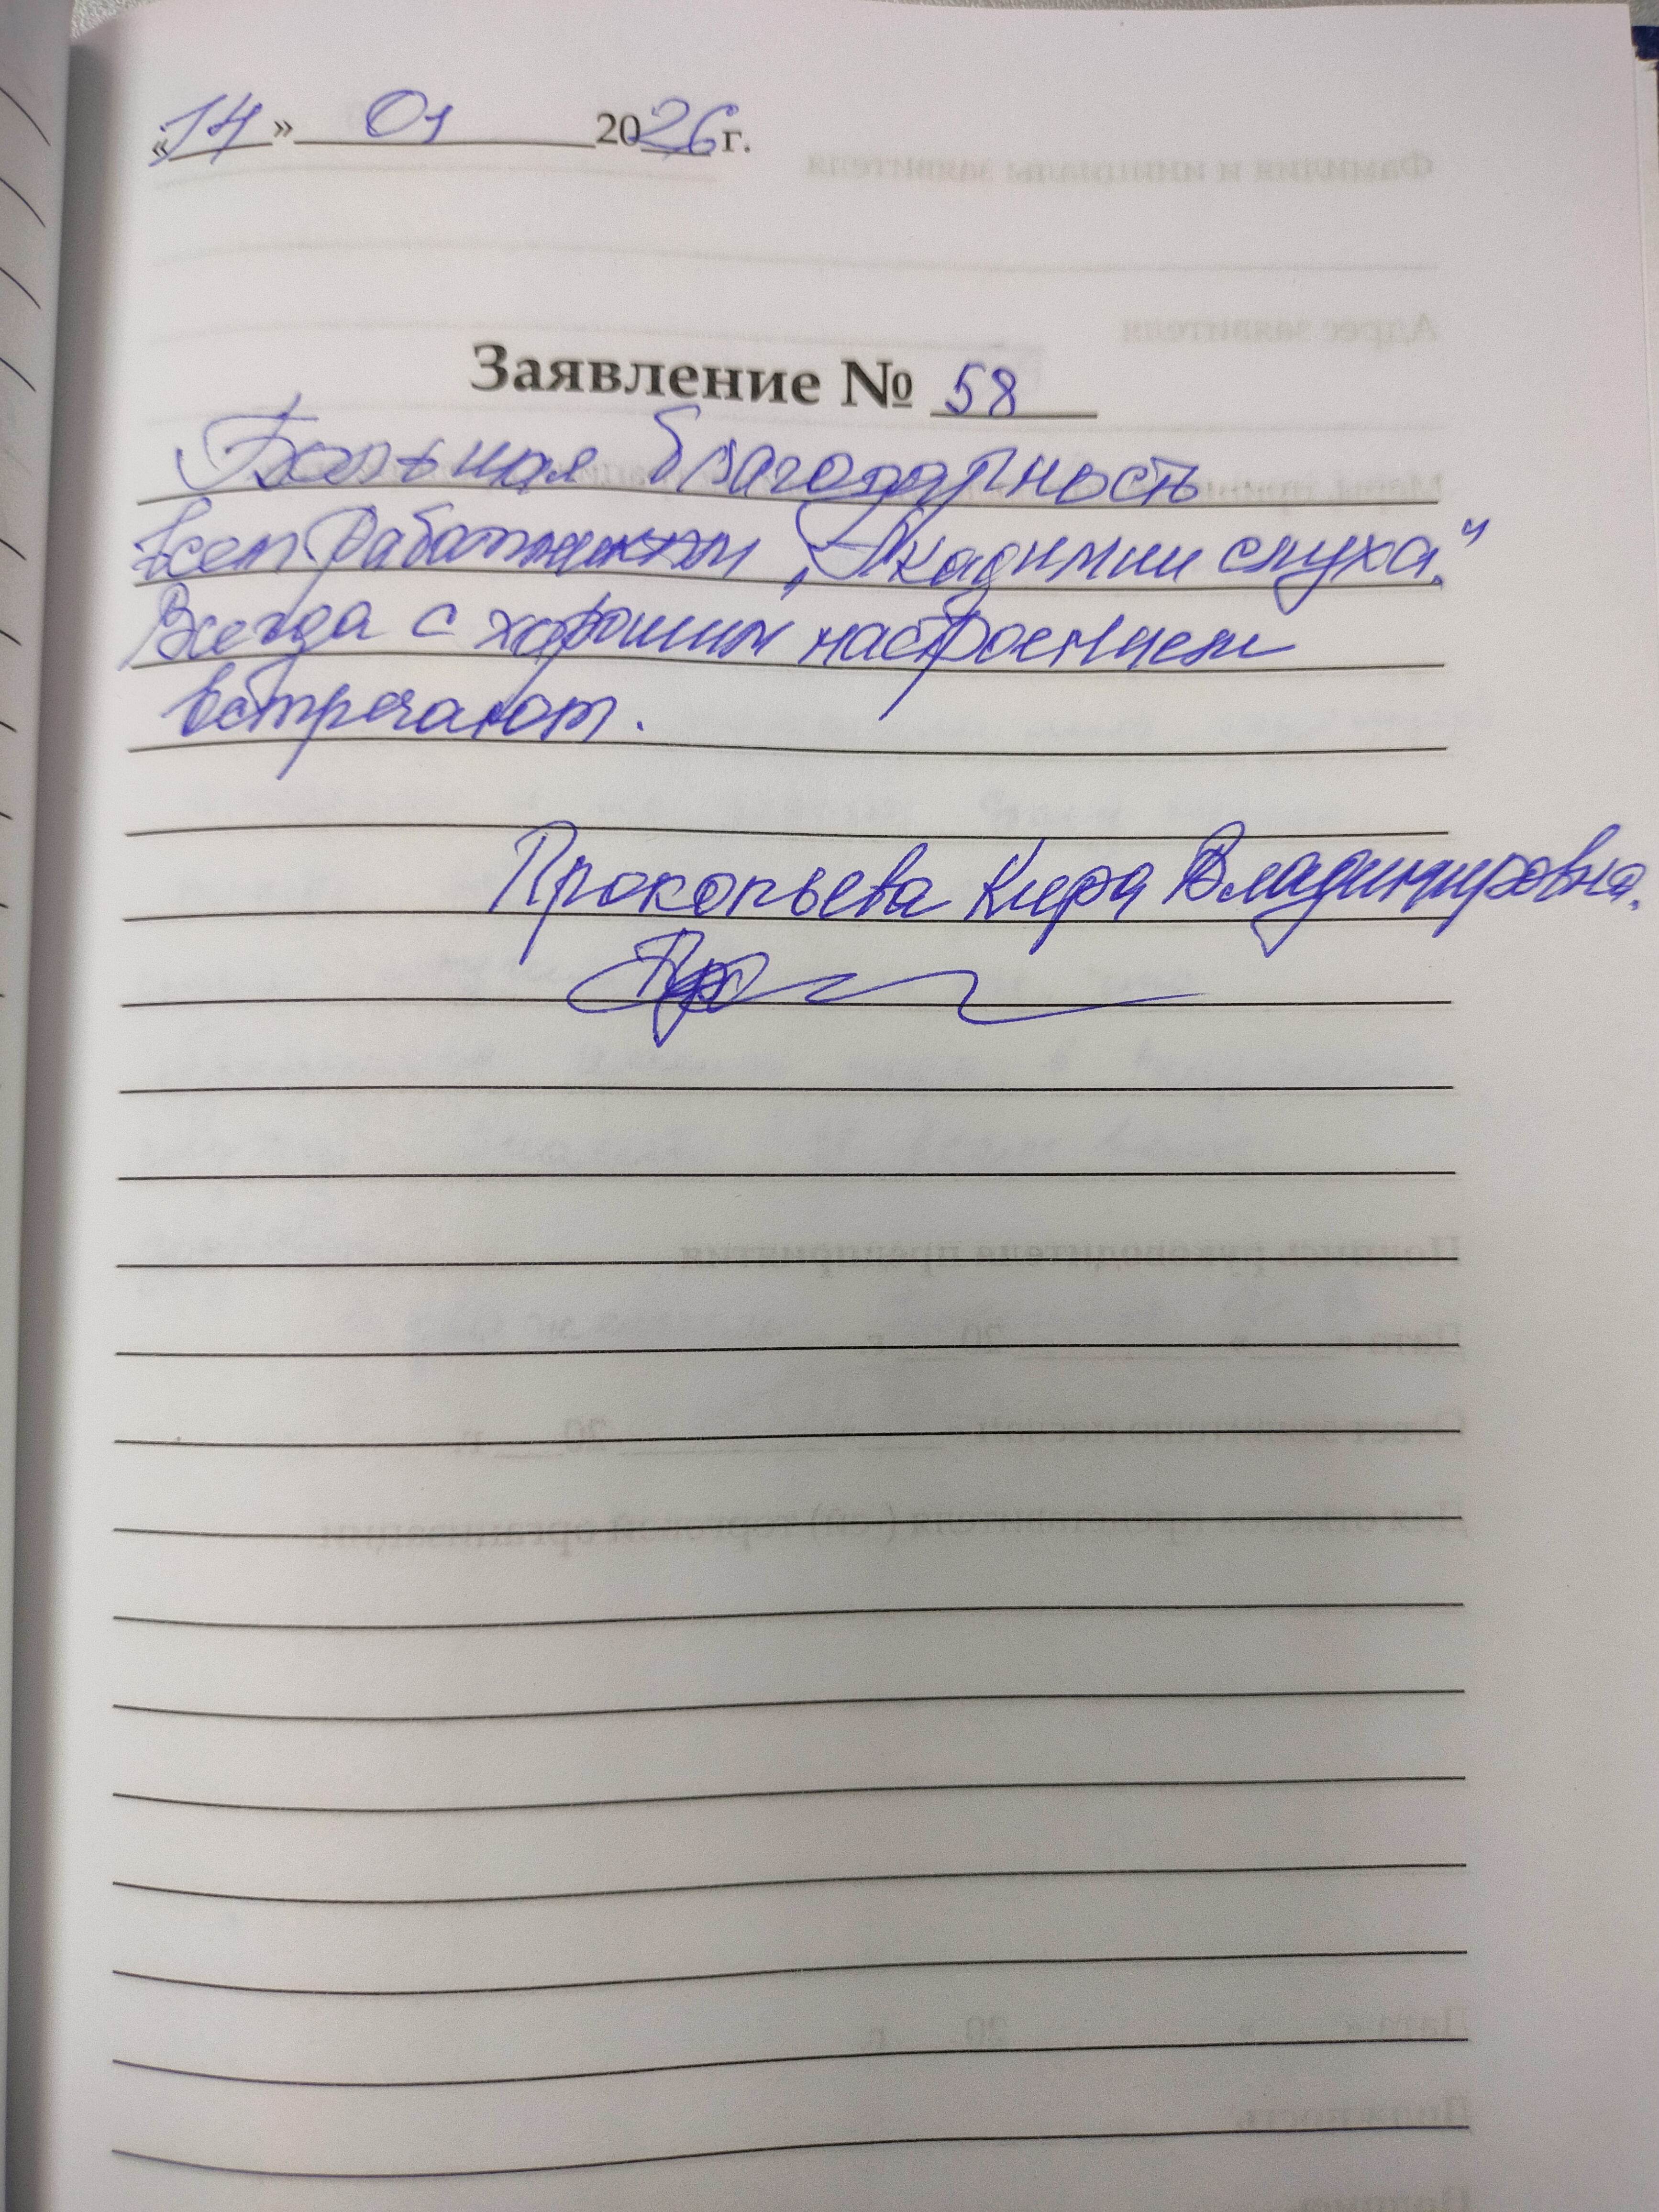 «14» 01 2026 г.
Заявление № 58
Большая благодарность
всем работникам "Акадимии слуха."
Всегда с хорошим настроением
встречают.
Прокопьева Кира Владимировна.